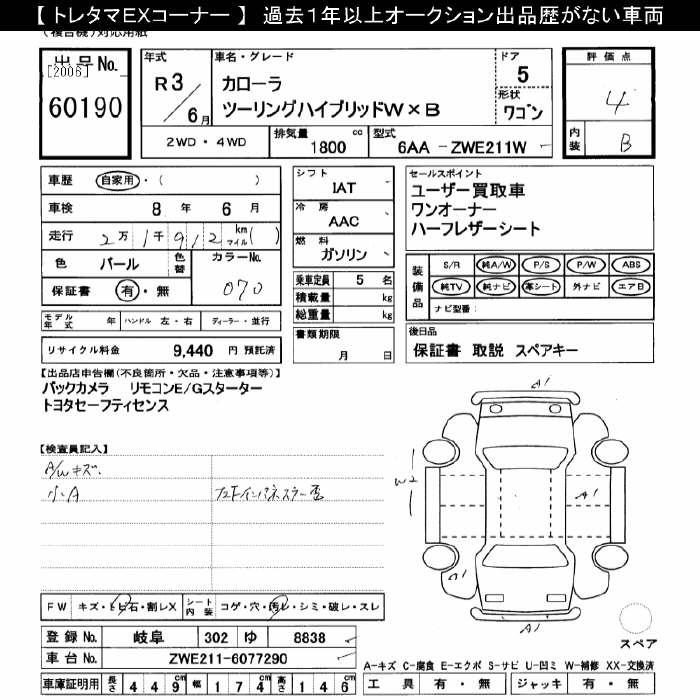 【 トレタマEXコーナー 】 過去1年以上オークション出品歴がない車両
(複合機)対応用紙
出品No.
[2006]
60190
年式
R3/6月
車名・グレード
カローラ
ツーリングハイブリッドW×B
ドア
5
形状
ワゴン
評価点
4
内装
B
2WD・4WD
排気量
1800 cc
型式
6AA - ZWE211W
車歴 自家用・( )
車検 8年 6月
走行 2万1千912 km マイル( )
色 パール 色替 カラーNo. 070
保証書 有・無
モデル年式 年 ハンドル 左・右 ディーラー・並行
リサイクル料金 9,440 円 預託済
シフト
IAT
冷房
AAC
燃料
ガソリン
乗車定員 5 名
積載量 kg
総重量 kg
書類期限
月 日
セールスポイント
ユーザー買取車
ワンオーナー
ハーフレザーシート
装備品
S/R 純A/W P/S P/W ABS
純TV 純ナビ 革シート 外ナビ エアB
ナビ型番:
後日品
保証書 取説 スペアキー
【出品店申告欄(不良箇所・欠品・注意事項等)】
バックカメラ リモコンE/Gスターター
トヨタセーフティセンス
【検査員記入】
A/Wキズ.
小A
左Fインパネスラー歪
A1
W2
A1
A1
A1
FW キズ・トビ石・割レX シート内装 コゲ・穴・汚レ・シミ・破レ・スレ
登録No. 岐阜 302 ゆ 8838
車台No. ZWE211-6077290
車庫証明用 長さ 449cm 幅 174cm 高さ 146cm
スペア
A-キズ C-腐食 E-エクボ S-サビ U-凹ミ W-補修 XX-交換済
工具 有・無 ジャッキ 有・無